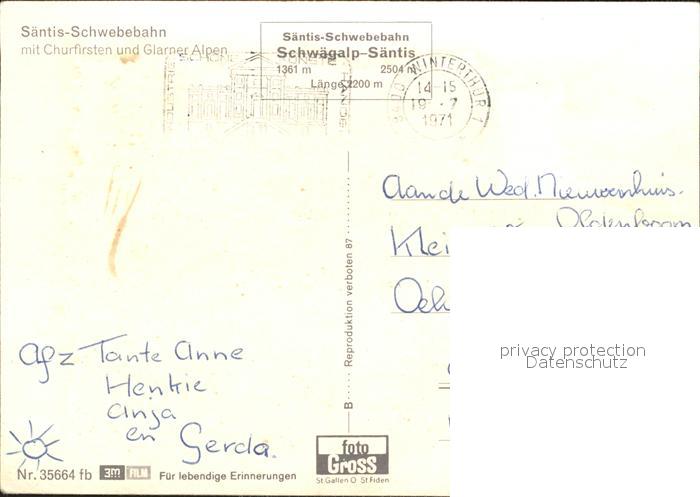 Säntis-Schwebebahn
mit Churfirsten und Glarner Alpen
Säntis-Schwebebahn
Schwägalp-Säntis
1361 m 2504 m
Länge 2200 m
WINTERTHUR 1
14-15
19.-7
1971
Aan de Wed. Nieuwenhuis.
Oldenboom
Klei
Oeh
Afz Tante Anne
Henkie
Anja
en Gerda.
Reproduktion verboten 87
B
privacy protection
Datenschutz
Nr. 35664 fb 3m FILM Für lebendige Erinnerungen
foto
Gross
St. Gallen O St Fiden